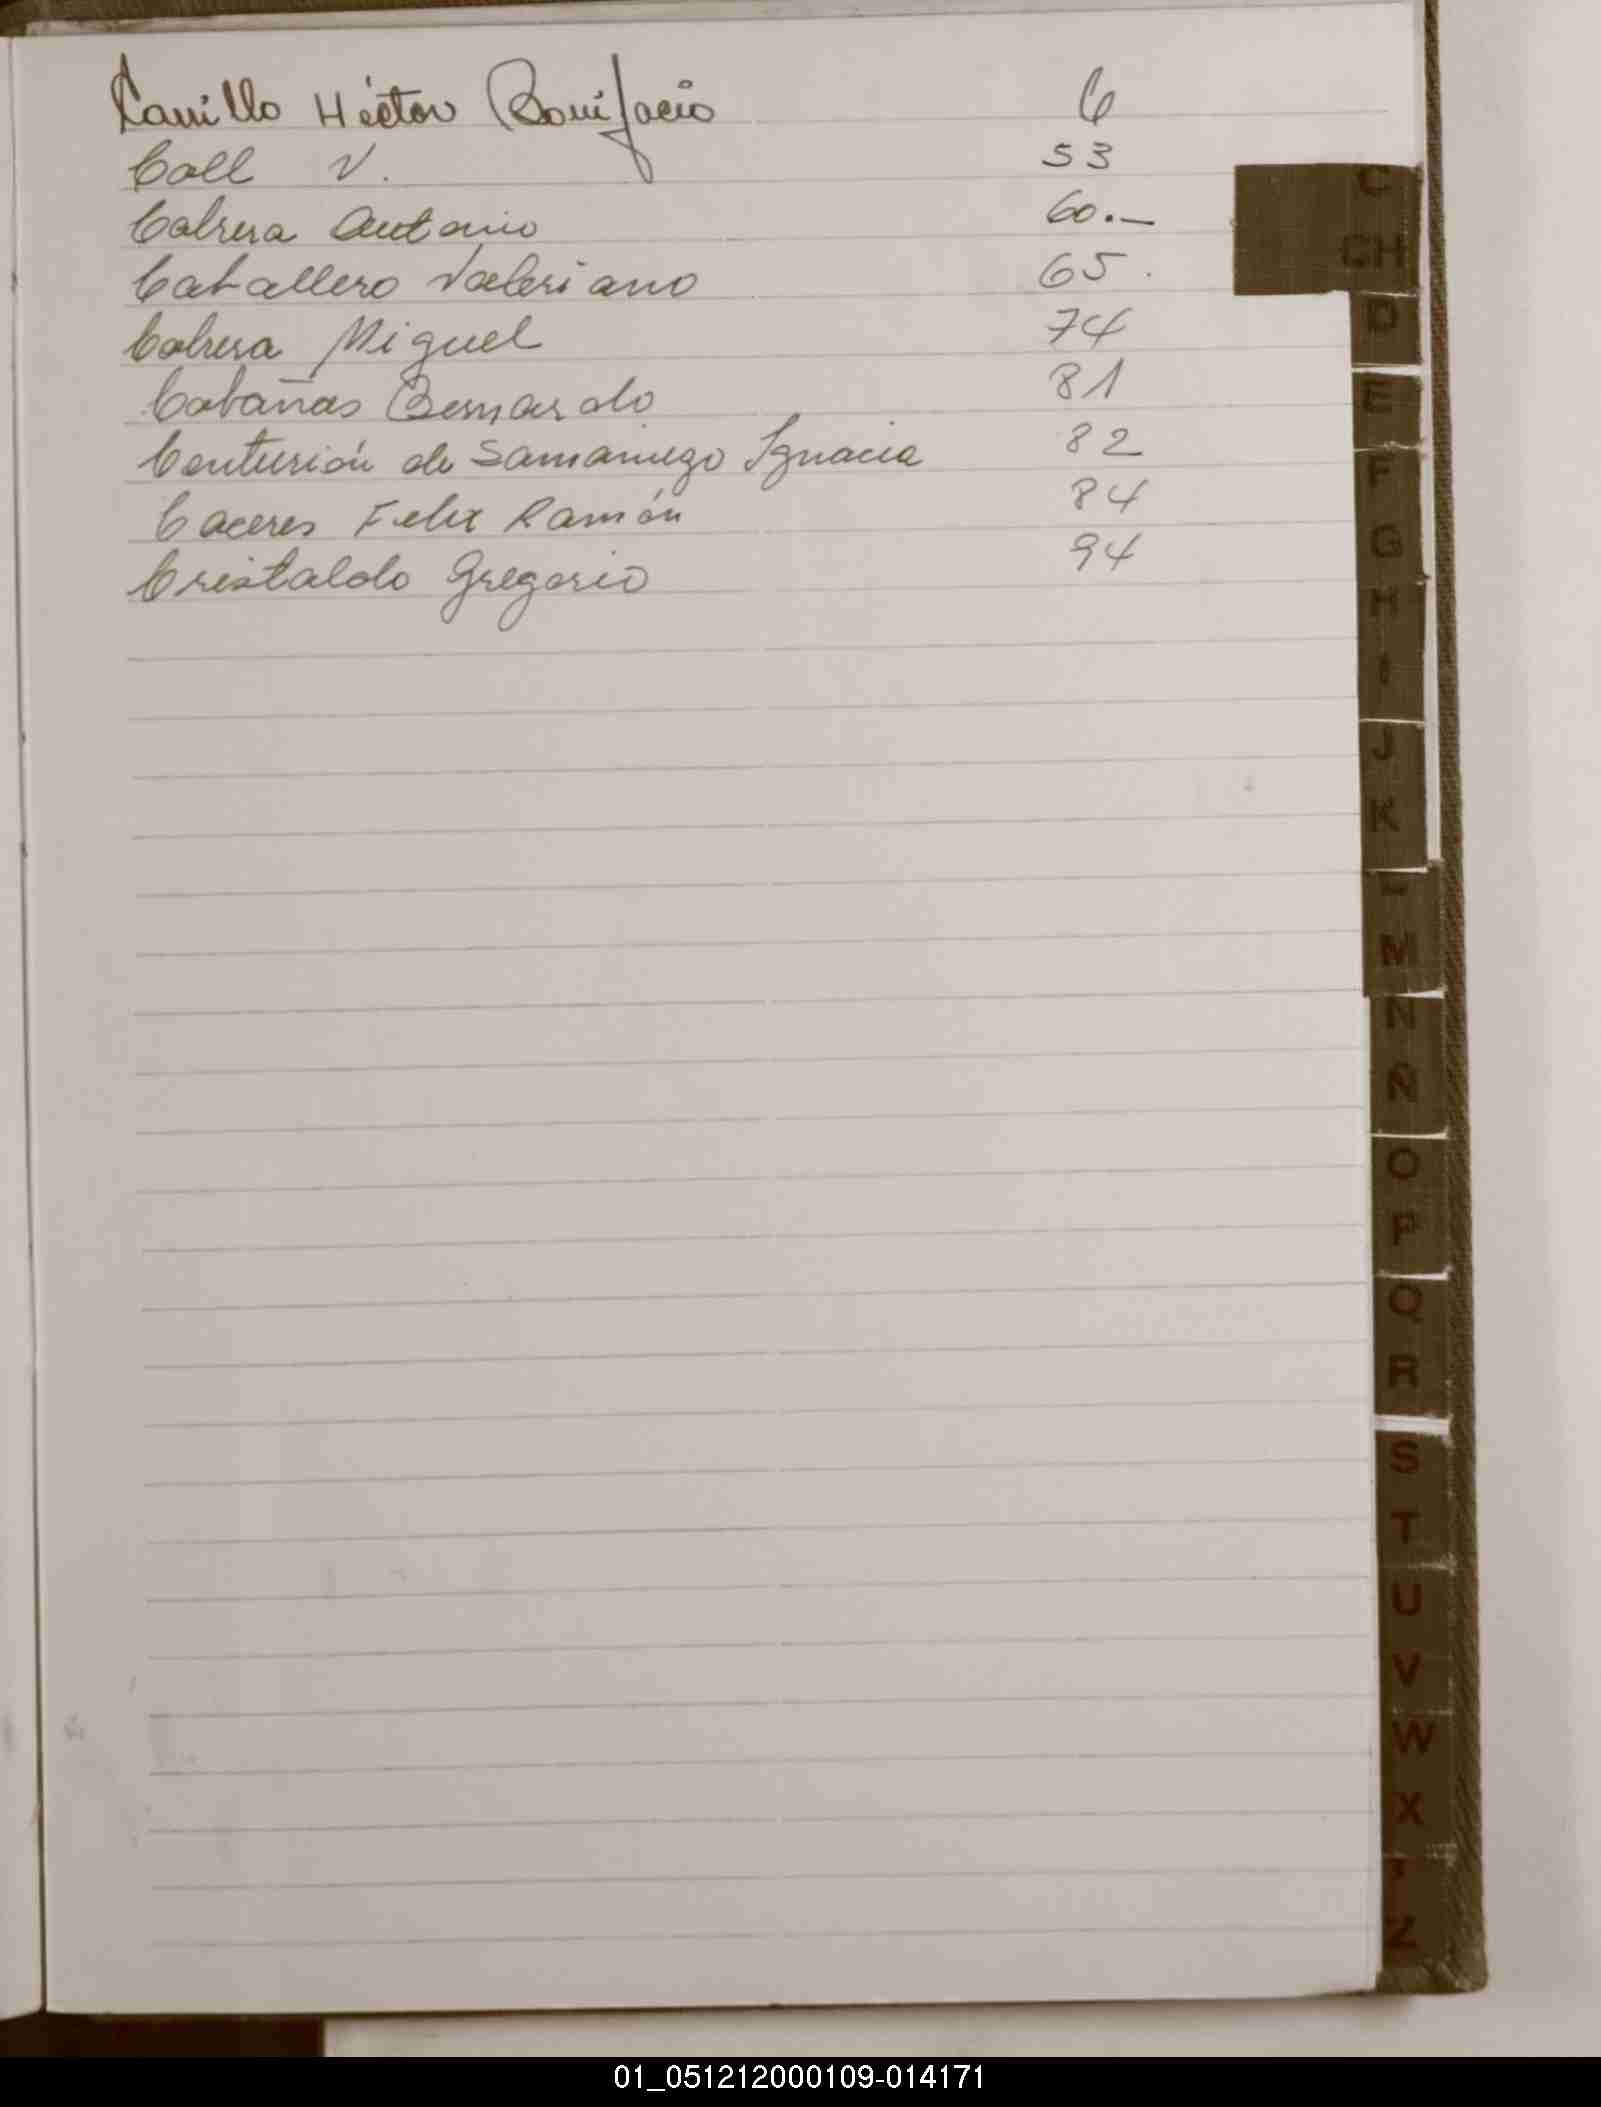 Carrillo Héctor Bonifacio 6
Coll V. 53
Cabrera Antonio 60.—
Caballero Valeriano 65.
Cabrera Miguel 74
Cabañas Bernardo 81
Centurión de Samaniego Ignacia 82
Caceres Felix Ramón 84
Cristaldo Gregorio 94
C
CH
D
E
F
G
H
I
J
K
L
M
N
Ñ
O
P
Q
R
S
T
U
V
W
X
Z
01_051212000109-014171